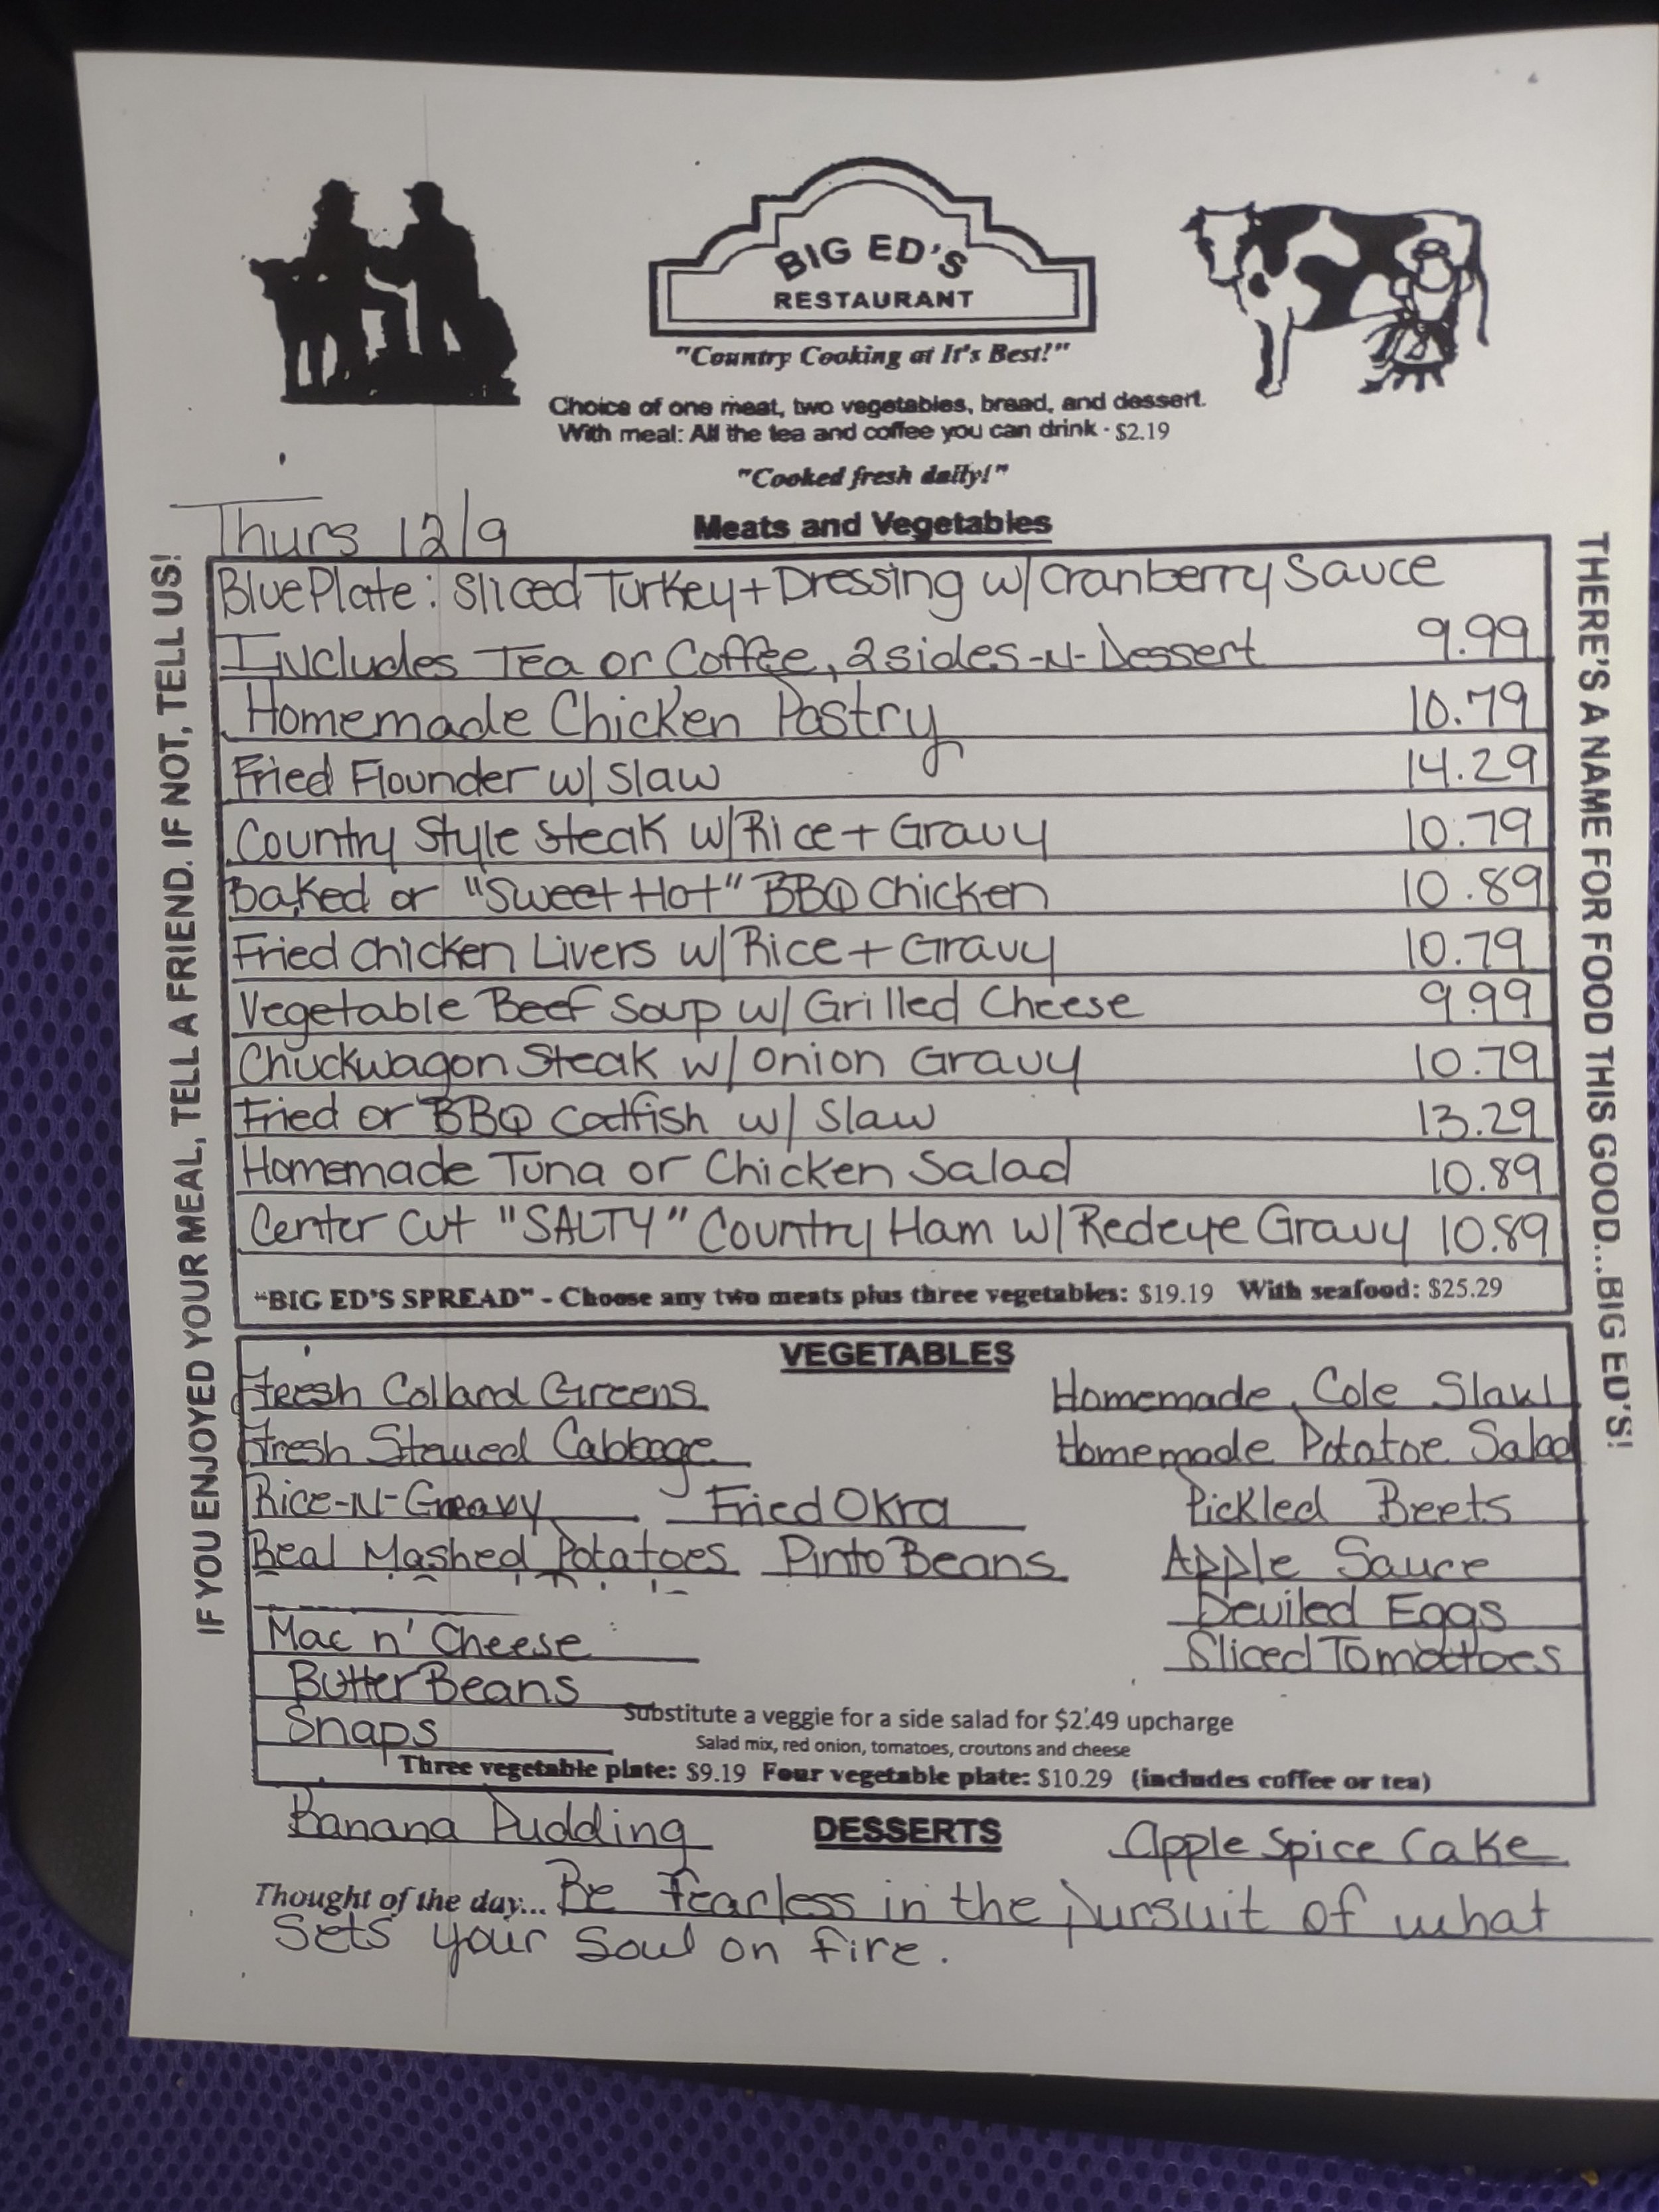 BIG ED'S
RESTAURANT
"Country Cooking at It's Best!"
Choice of one meat, two vegetables, bread, and dessert.
With meal: All the tea and coffee you can drink - $2.19
"Cooked fresh daily!"
Thurs 12/9
Meats and Vegetables
Blue Plate: Sliced Turkey + Dressing w/ Cranberry Sauce
Includes Tea or Coffee, 2 sides -N- Dessert 9.99
Homemade Chicken Pastry 10.79
Fried Flounder w/ Slaw 14.29
Country Style Steak w/ Rice + Gravy 10.79
Baked or "Sweet Hot" BBQ Chicken 10.89
Fried Chicken Livers w/ Rice + Gravy 10.79
Vegetable Beef Soup w/ Grilled Cheese 9.99
Chuckwagon Steak w/ Onion Gravy 10.79
Fried or BBQ Catfish w/ Slaw 13.29
Homemade Tuna or Chicken Salad 10.89
Center Cut "SALTY" Country Ham w/ Redeye Gravy 10.89
"BIG ED'S SPREAD" - Choose any two meats plus three vegetables: $19.19 With seafood: $25.29
VEGETABLES
Fresh Collard Greens Homemade Cole Slaw
Fresh Stewed Cabbage Homemade Potatoe Salad
Rice-N-Gravy Fried Okra Pickled Beets
Real Mashed Potatoes Pinto Beans Apple Sauce
Deviled Eggs
Mac n' Cheese Sliced Tomatoes
Butter Beans
Snaps Substitute a veggie for a side salad for $2.49 upcharge
Salad mix, red onion, tomatoes, croutons and cheese
Three vegetable plate: $9.19 Four vegetable plate: $10.29 (includes coffee or tea)
Banana Pudding DESSERTS Apple Spice Cake
Thought of the day... Be fearless in the pursuit of what
sets your soul on fire.
IF YOU ENJOYED YOUR MEAL, TELL A FRIEND. IF NOT, TELL US!
THERE'S A NAME FOR FOOD THIS GOOD...BIG ED'S!